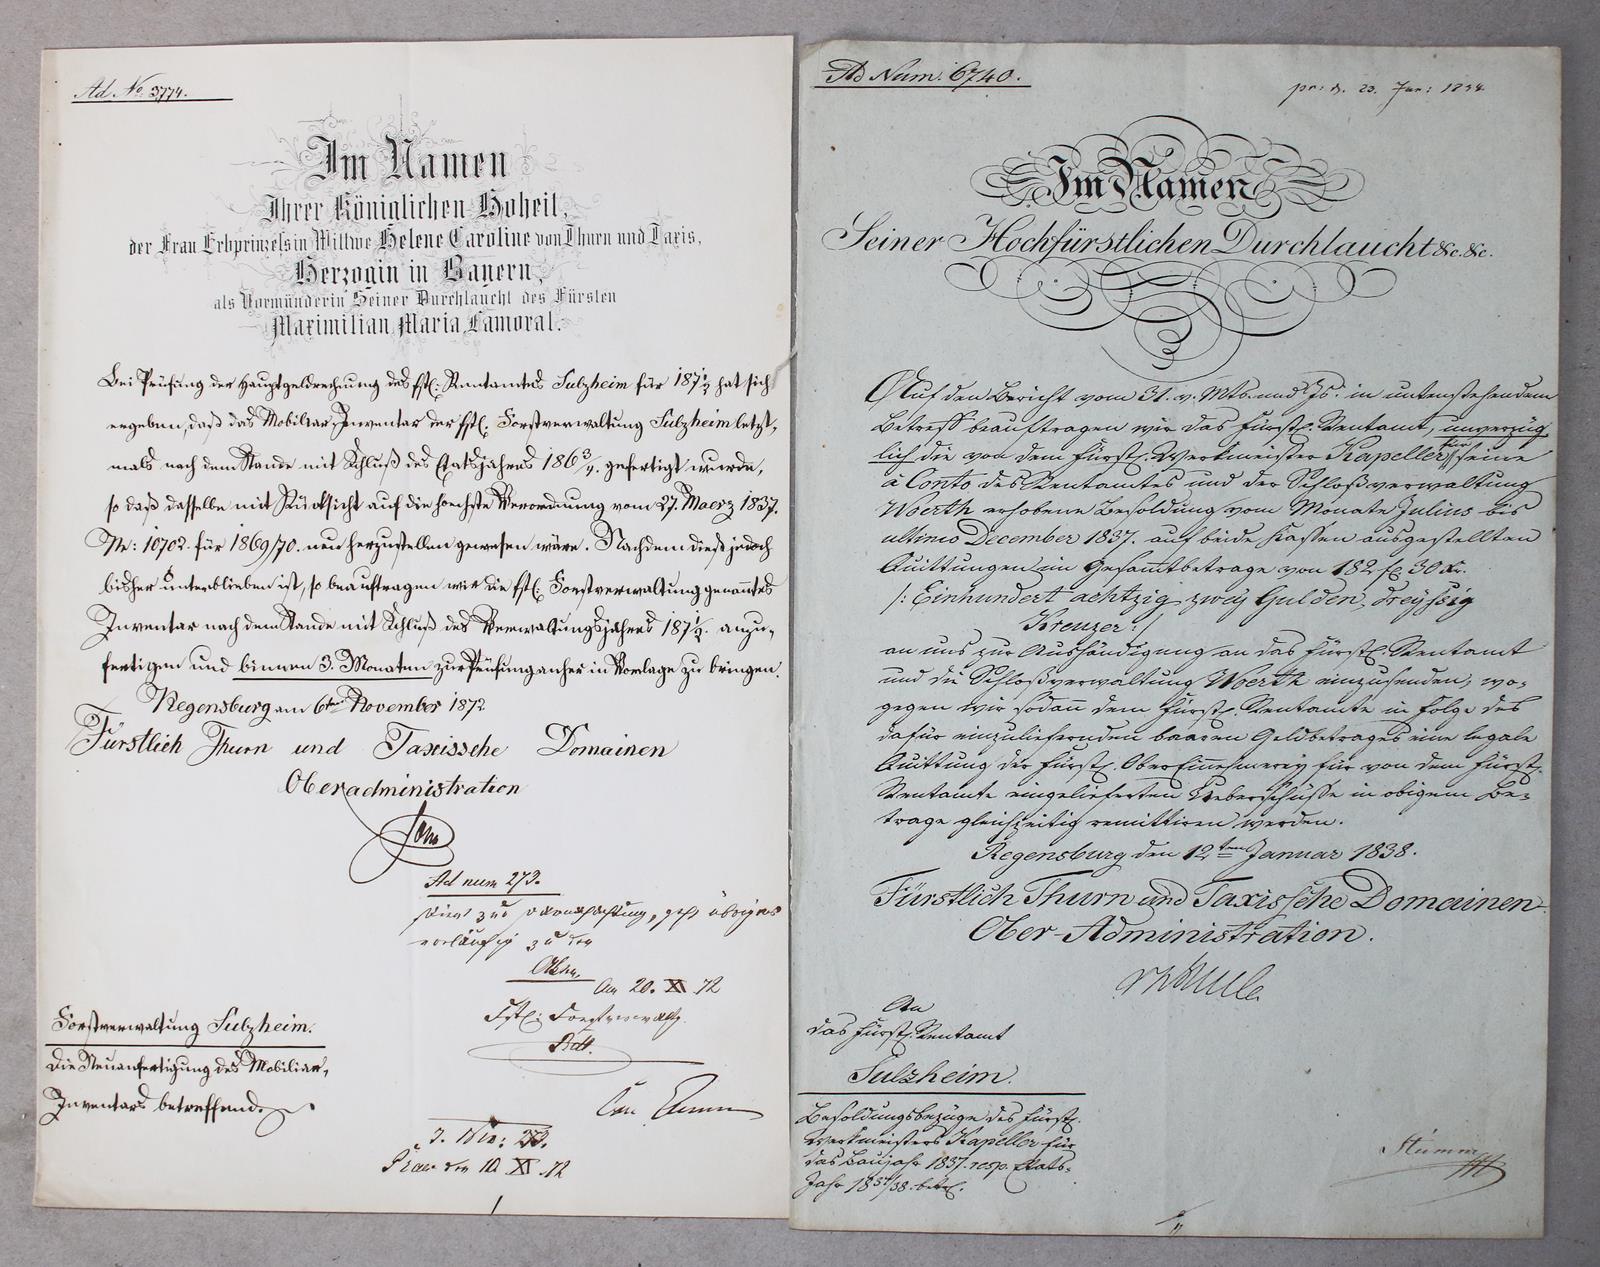 Ad No. 3774.
Im Namen
Ihrer Königlichen Hoheit,
der Frau Erbprinzessin Wittwe Helene Caroline von Thurn und Taxis,
Herzogin in Bayern,
als Vormünderin Seiner Durchlaucht des Fürsten
Maximilian Maria Lamoral.
Bei Prüfung der Hauptgeldrechnung des fstl: Rentamtes Sulzheim für 187 1/2 hat sich
ergeben, daß das Mobiliar-Inventar der fstl. Forstverwaltung Sulzheim letzt-
mals nach dem Stande mit Schluß des Etatsjahres 186 3/4. gefertigt wurde,
so daß dasselbe mit Rücksicht auf die hoechste Verordnung vom 27. Maerz 1837.
Nr: 10702. für 1869/70. neu herzustellen gewesen wäre. Nachdem dieß jedoch
bisher unterblieben ist, so beauftragen wir die fstl: Forstverwaltung genanntes
Inventar nach dem Stande mit Schluß des Verwaltungsjahres 187 1/2. anzu-
fertigen und binnen 3. Monaten zur Prüfung anher in Vorlage zu bringen.
Regensburg am 6ten November 1872
Fürstlich Thurn und Taxissche Domainen
Oberadministration
Ad num 273.
vorläufig zu den
Akten.
Am 20. XI. 72
Fstl: Forstverwaltg.
Forstverwaltung Sulzheim.
Die Neuanfertigung des Mobiliar-
Inventars betreffend.
10. XI. 72
Ad Num. 6740.
pr: d. 23. Jan:
Im Namen
Seiner Hochfürstlichen Durchlaucht &c. &c.
Auf den Bericht vom 31. v. Mts. und Js. in untenstehendem
Betreff beauftragen wir das Fürstl. Rentamt, unverzüg-
lich die von dem Fürstl. Werkmeister Kapeller für seine
à Conto des Rentamtes und der Schloßverwaltung
Woerth erhobene Besoldung vom Monate Julius bis
ultimo December 1837. auf beide Kassen ausgestellten
Quittungen im Gesammtbetrage von 182 fl. 30 kr.
/: Einhundert achtzig zwey Gulden, dreyssig
Kreuzer :/
an uns zur Aushändigung an das Fürstl. Rentamt
und die Schloßverwaltung Woerth einzusenden, wo-
gegen wir sodann dem Fürstl. Rentamte in Folge des
dafür einzuliefernden baaren Geldbetrages eine legale
Quittung der Fürstl. Ober Einnehmerey für von dem Fürstl.
Rentamte eingelieferten Ueberschüsse in obigem Be-
trage gleichzeitig remittiren werden.
Regensburg den 12ten Januar 1838.
Fürstlich Thurn und Taxissche Domainen
Ober-Administration.
An
das Fürstl. Rentamt
Sulzheim.
Besoldungsbezüge des Fürstl.
Werkmeisters Kapeller für
das Baujahr 1837. resp. Etats-
Jahr 1837/38. betr.